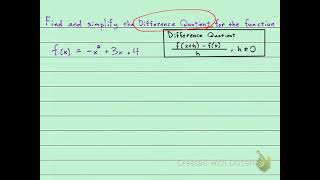 Find and simplify the Difference Quotient for the function
Difference Quotient
f(x) = -x² + 3x + 4
f(x+h) - f(x)
h
, h≠0
Created with Doceri